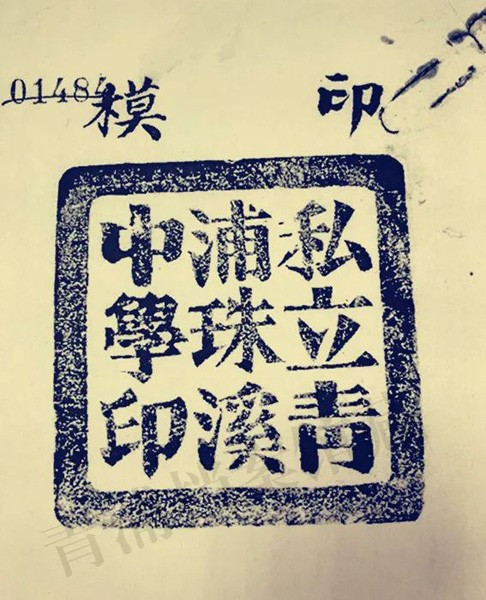 01484
印模
私立青
浦珠溪
中學印